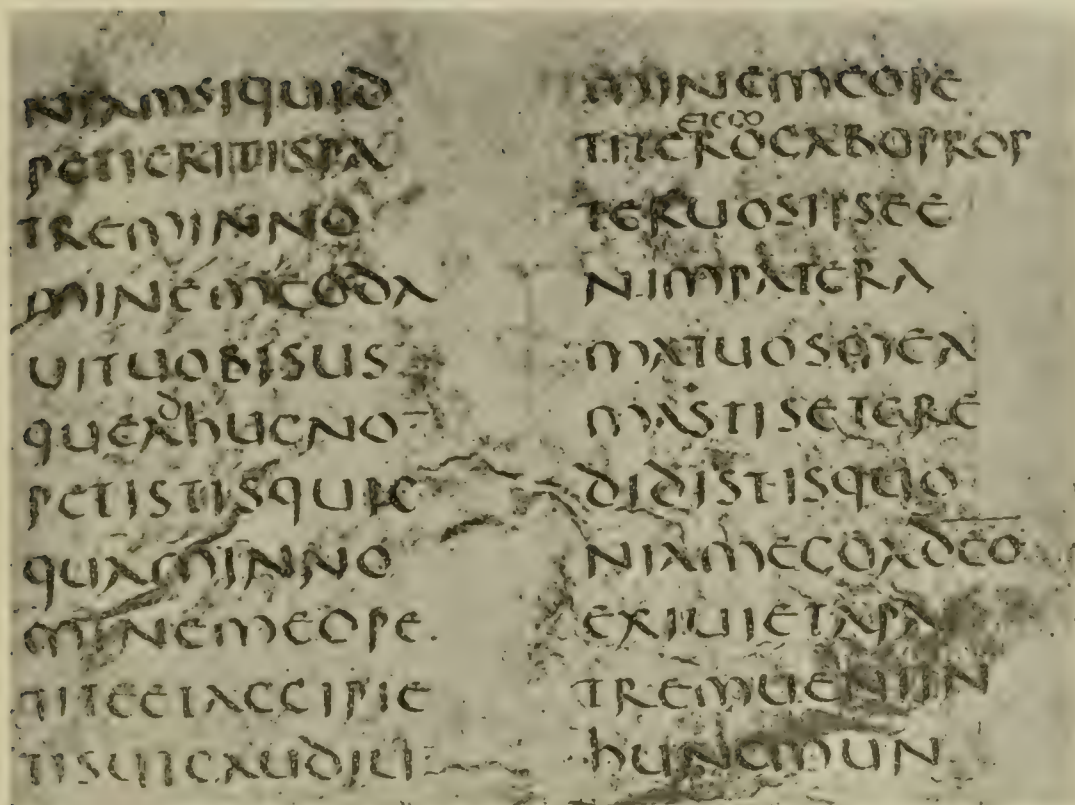 NIAMSIQUID
PETIERITISPA
TREMINNO
MINEMEODA
UITUOBISUS
QUEAdHUCNO¯
PETISTISQUIC
QUAMINNO
MINEMEOPE
TITEETACCIPIE
TISUTGAUDIU
MINEMEOPE
etego
TITEROGABOPROP
TERUOSIPSEE
NIMPATERA
MATUOSMEA
MASTISETCRE
DIDISTISQUO
NIAMEGOADEO
EXIUIETAPA
TREMUENIIN
HUNCMUN